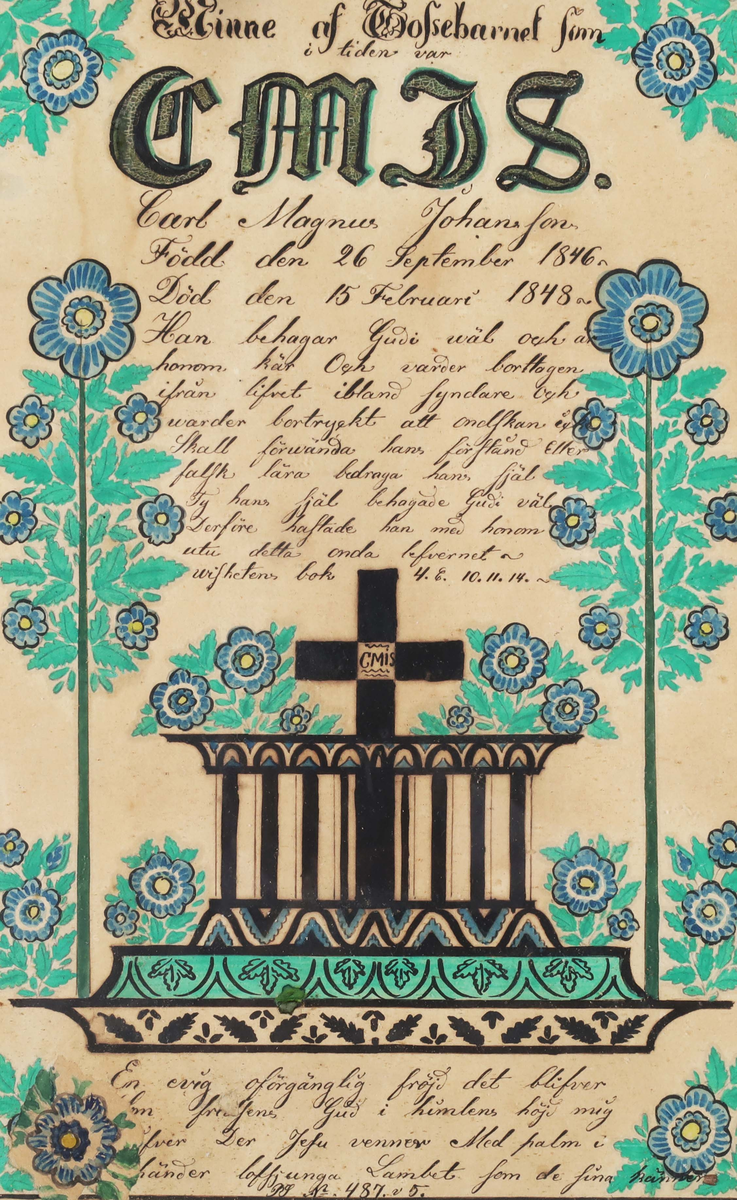 Minne af Gossebarnet som
i tiden var
C M I S.
Carl Magnus Johansson
Född den 26 September 1846
Död den 15 Februari 1848
Han behagar Gudi wäl och är
honom kär Och varder borttagen
ifrån lifret ibland syndare och
warder bortryckt att ondskan icke
Skall förwända hans förstånd Etter
falsk lära bedraga hans själ
Ty hans själ behagade Gudi väl
Derföre hastade han med honom
utu detta onda lefvernet
wishetens bok 4. C. 10. 11. 14.
CMIS
En evig oförgänglig fröjd det blifver
Gud i himlens höjd mig
Der Jesu venner Med palm i
händer lofsjunga Lambet som de sina känner
PS. Nr. 487. v 5.